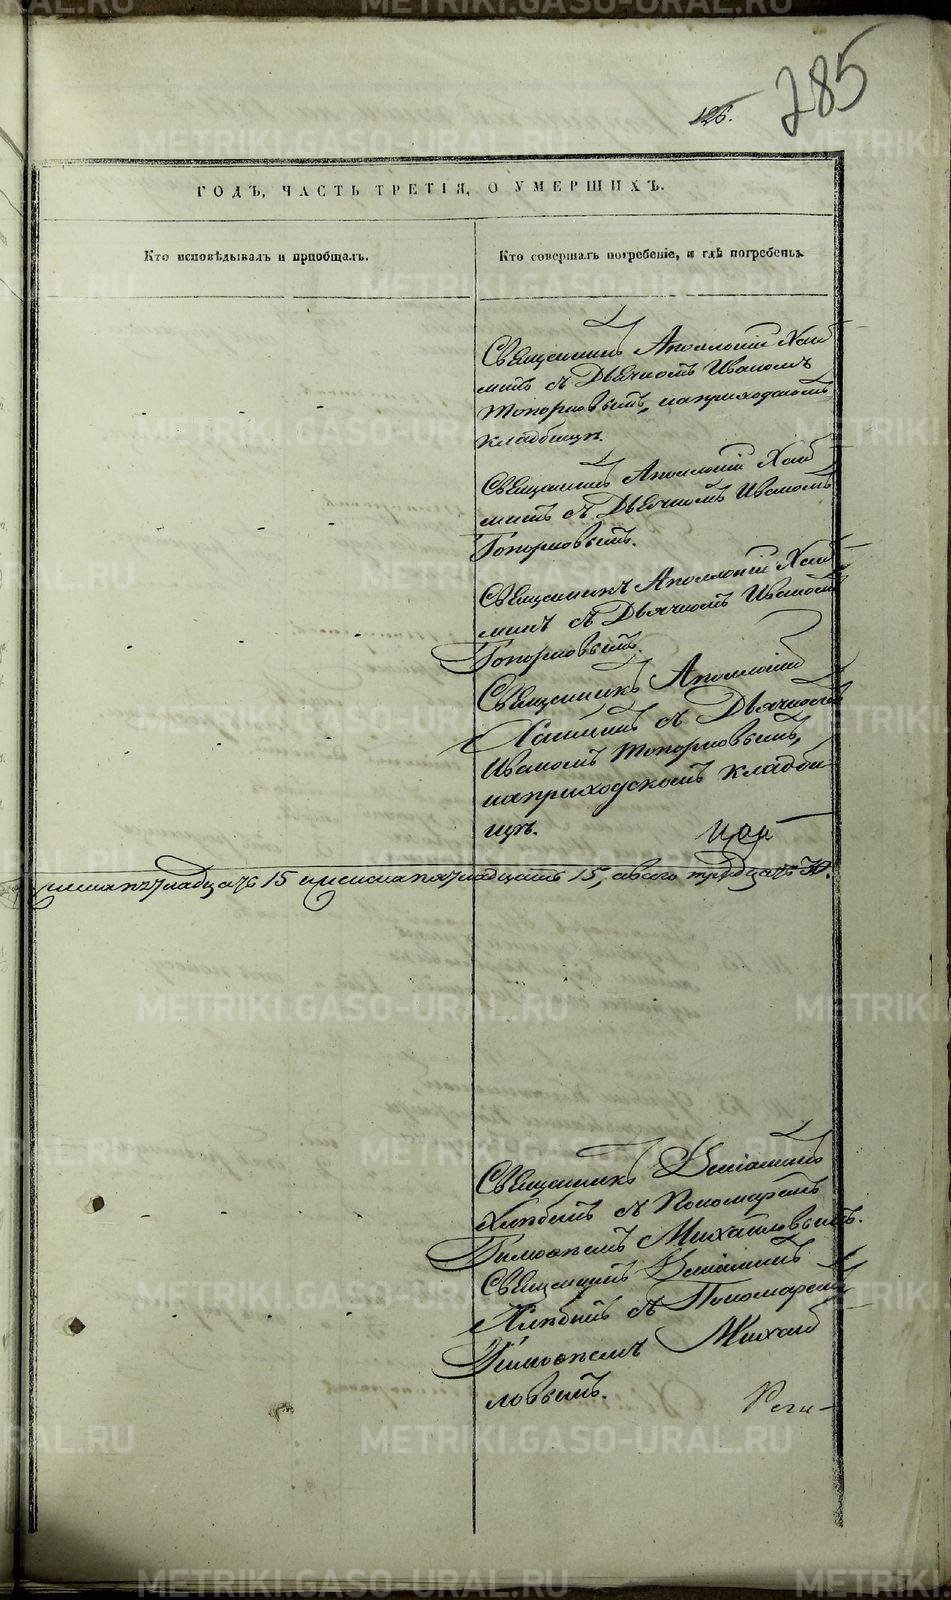 285
126.
ГОДЪ, ЧАСТЬ ТРЕТІЯ, О УМЕРШИХЪ.
Кто исповѣдывалъ и пріобщалъ.
Кто совершалъ погребеніе, и гдѣ погребены.
Священникъ Аполлоній
съ Дьячкомъ Иваномъ
Топорковымъ, на приходскомъ
кладбищѣ.
Священникъ Аполлоній
съ Дьячкомъ Иваномъ
Топорковымъ.
Священникъ Аполлоній
съ Дьячкомъ Иваномъ
Топорковымъ.
Священникъ Аполлоній
съ Дьячкомъ
Иваномъ Топорковымъ,
на приходскомъ кладби-
щѣ.
пятнадцать 15 и женска пятнадцать 15, а всего тридцать 30.
Священникъ Веніаминъ
съ Пономаремъ
Тимофеемъ Михайловымъ.
Священникъ Веніаминъ
съ Пономаремъ
Тимофеемъ Михай
ловымъ.
METRIKI.GASO-URAL.RU